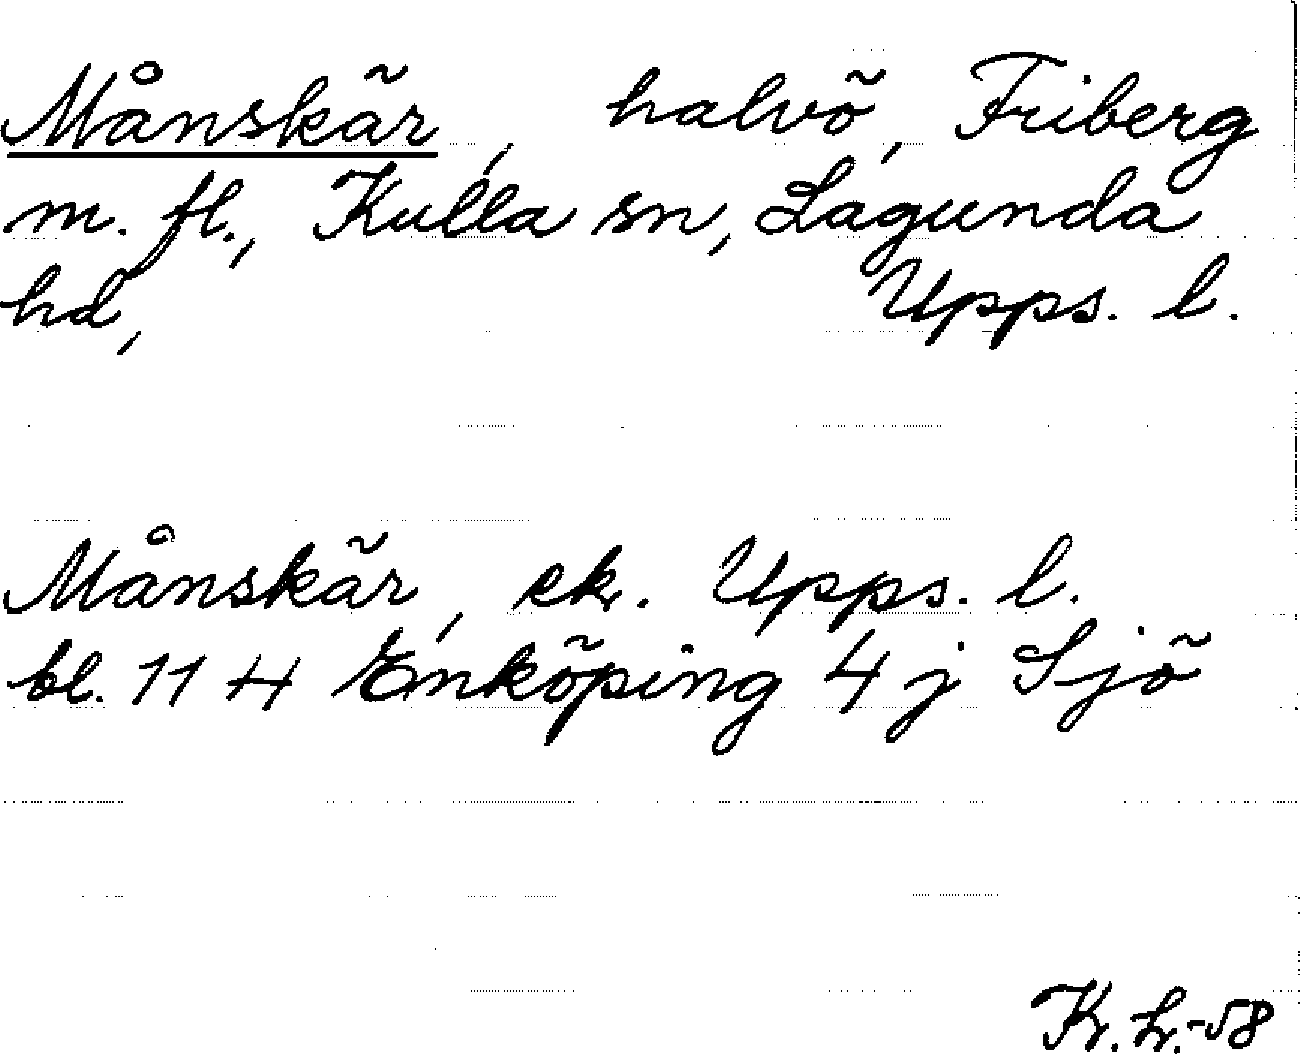 Månskär, halvö, Friberg
m. fl., Kulla sn, Lagunda
hd, Upps. l.
Månskär, ek. Upps. l.
bl. 11 4 Enköping 4 j Sjö
K. L.-58